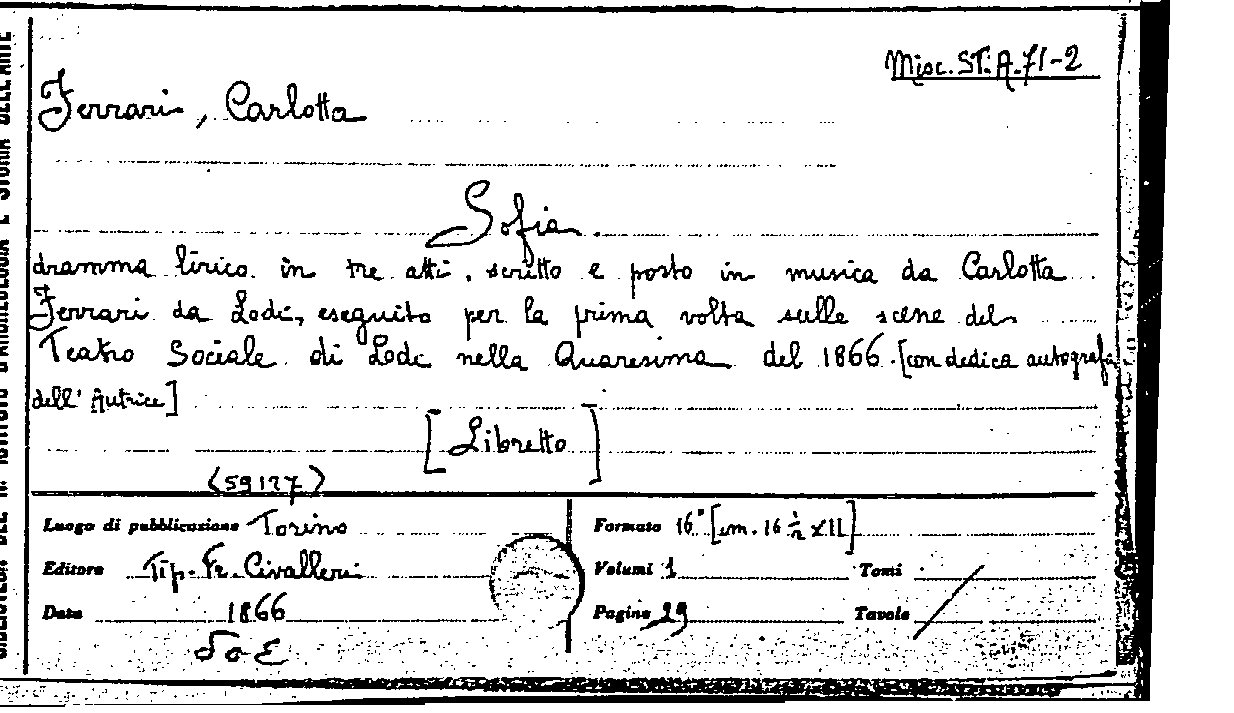 Misc. ST. A. 71-2
Ferrari, Carlotta
Sofia.
dramma lirico in tre atti, scritto e posto in musica da Carlotta
Ferrari da Lodi, eseguito per la prima volta sulle scene del
Teatro Sociale di Lodi nella Quaresima del 1866. [con dedica autografa
dell' Autrice]
[Libretto]
(59127)
Luogo di pubblicazione Torino
Formato 16° [cm. 16 ½ x 11]
Editore Tip. Fr. Civalleri
Volumi 1
Tomi /
Data 1866
Pagine 29
Tavole